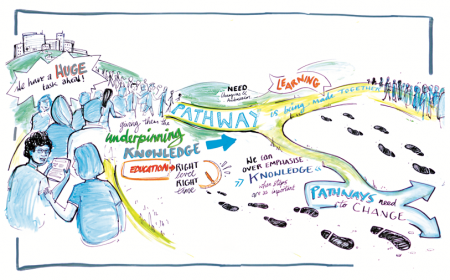 We have a HUGE
task ahead!
giving them the
underpinning
KNOWLEDGE
EDUCATION → RIGHT
level
RIGHT
time
NEED
Champions of
PATHWAY
LEARNING
is being made TOGETHER
We can
OVER EMPHASISE
KNOWLEDGE
other steps
are as important
PATHWAYS need
to CHANGE